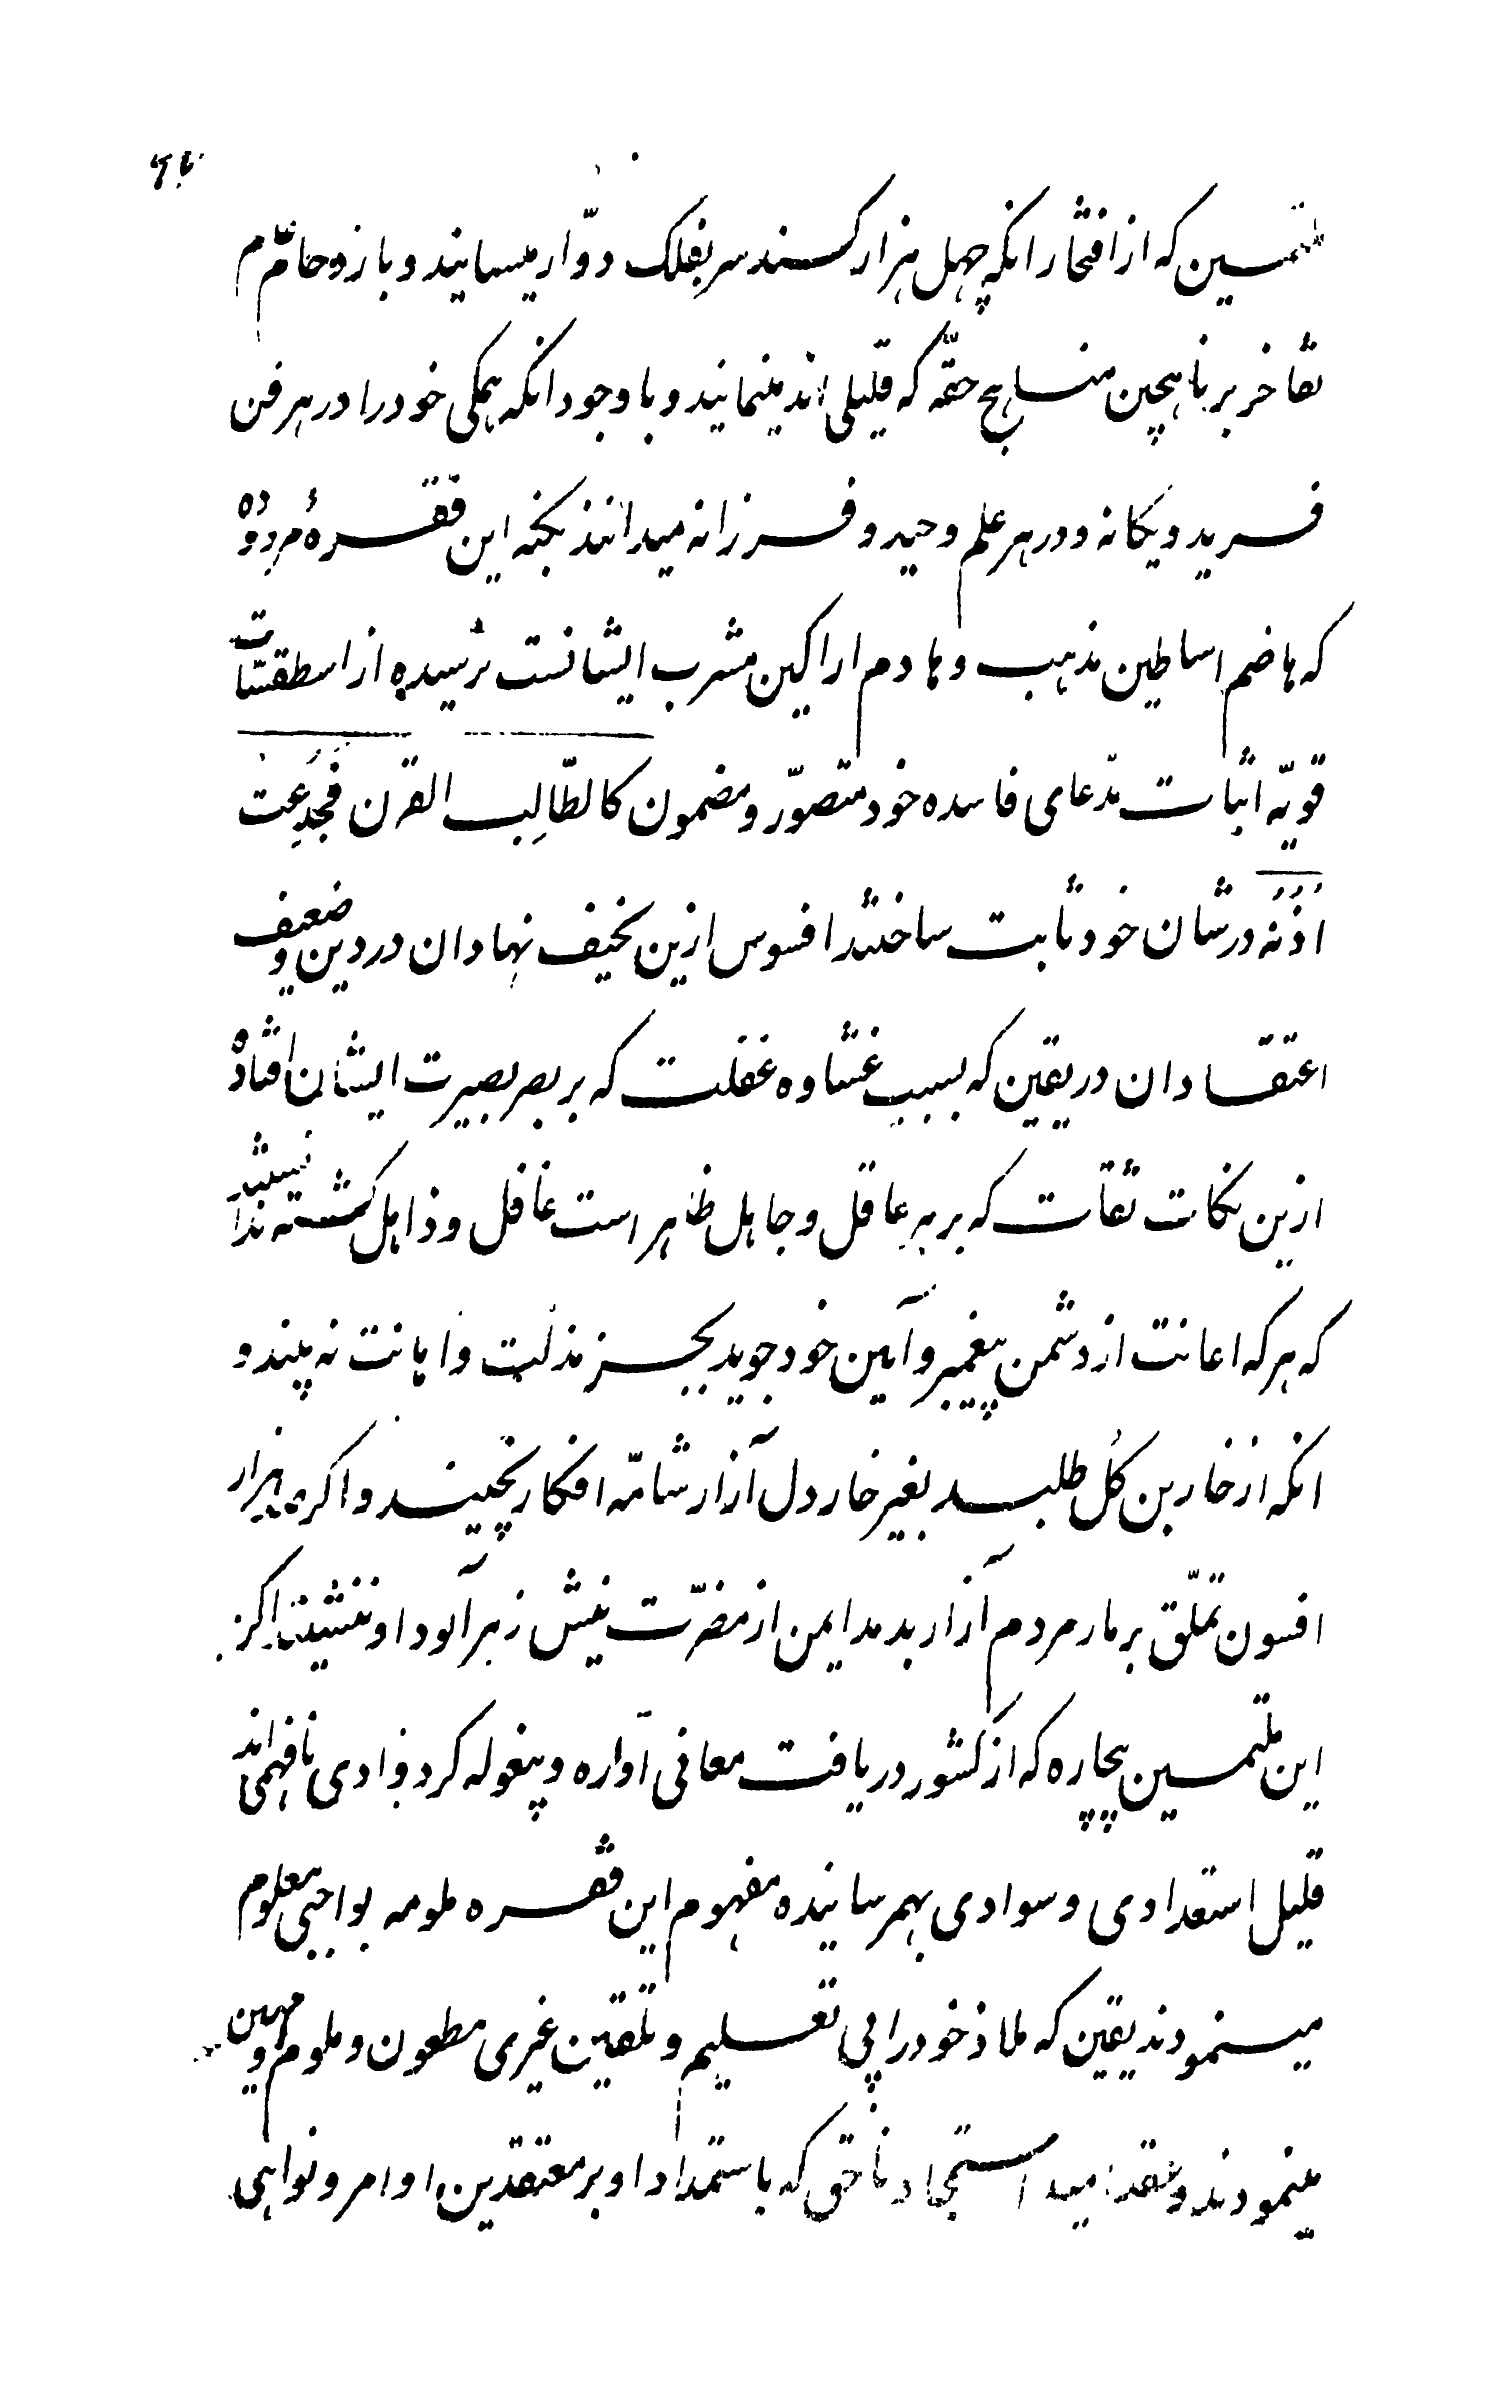 ملتمسین که از افتخار انکه چهل هزار کسند سر بفلک دوّار میسانید و بازوحام عام
تفاخر بر ناهچین مناهج حقّه که قلیلی اند مینمایند و با وجود انکه همکی خود را در هر فن
فرید و یکانه و در هر علم وحید و فرزانه میدانند بکنه این فقرهٔ مردوده
که هاضم اساطین مذهب و هادم اراکین مشرب ایشانست نرسیده از اسطقسّات
قویّه اثبات مدّعای فاسده خود متصوّر و مضمون کالطّالِب القرن فجُدِعَت
اُذُنَه در شان خود ثابت ساختند افسوس ازین نخیف نهادان در دین و ضعیف
اعتقادان در یقین که بسبب غشاوه غفلت که بر بصر بصیرت ایشان افتاده
ازین نکات ثقات که بر به عاقل و جاهل ظاهر است غافل و ذاهل کشته ندانستند
که هر که اعانت از دشمن پیغمبر و آیین خود جوید بجز مذلت و اهانت نه بیند و
انکه از خاربن کُل طلبد بغیر خار دل آزار شامّه افکار نچیند و اکر هزار
افسون تملّق بر مار مردم آزار بدمد ایمن از مضرّت نیش زهرآلود او ننشیند اکر
این ملتمسین بیچاره که از کشور دریافت معانی آواره و بیغوله کرد وادی نافهمی اند
قلیل استعدادی و سوادی بهم رسانیده مفهوم این فقره ملومه بواجبی معلوم
مینمودند یقین که ملاذ خود را پی تعلیم و تلقین غیری مطعون و ملوم و مهین
مینمودند و بقدر امید استنجاد ناحق که باستمداد او بر معتقدین اوامر و نواهی